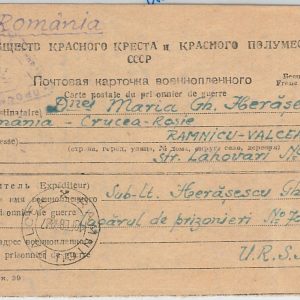 România
ОБЩЕСТВ КРАСНОГО КРЕСТА и КРАСНОГО ПОЛУМЕС
СССР
Почтовая карточка военнопленного
Carte postale du prisonnier de guerre
destinataire) Dnei Maria Gh. Herăse
mânia - Crucea-Roşie
RAMNICU-VALCE
esse) (страна, город, улица, № дома, округ, село, деревня)
Str. Lahovari No
итель (Expéditeur)
Sub-Lt. Herăsescu Gh
мя военнопленного
prisonnier de guerre
Lagărul de prizonieri No
адрес военнопленного
prisonnier de guerre U.R.S.
к. 39